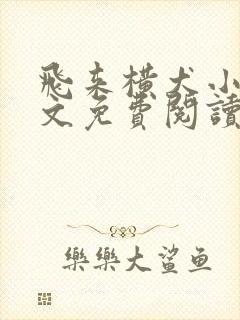 飛来横犬小
文免費閱讀
樂樂大鯊鱼